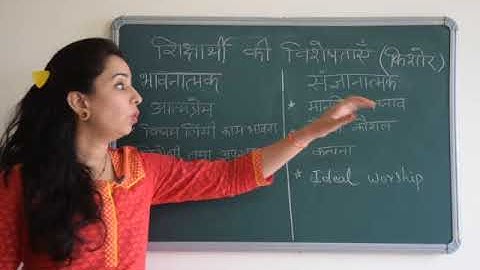 शिक्षार्थी की विशेषताएँ (किशोर)
भावनात्मक
आत्मप्रेम
विषम लिंगी काम भावना
तथा
संज्ञानात्मक
*
कौशल
कल्पना
* Ideal worship